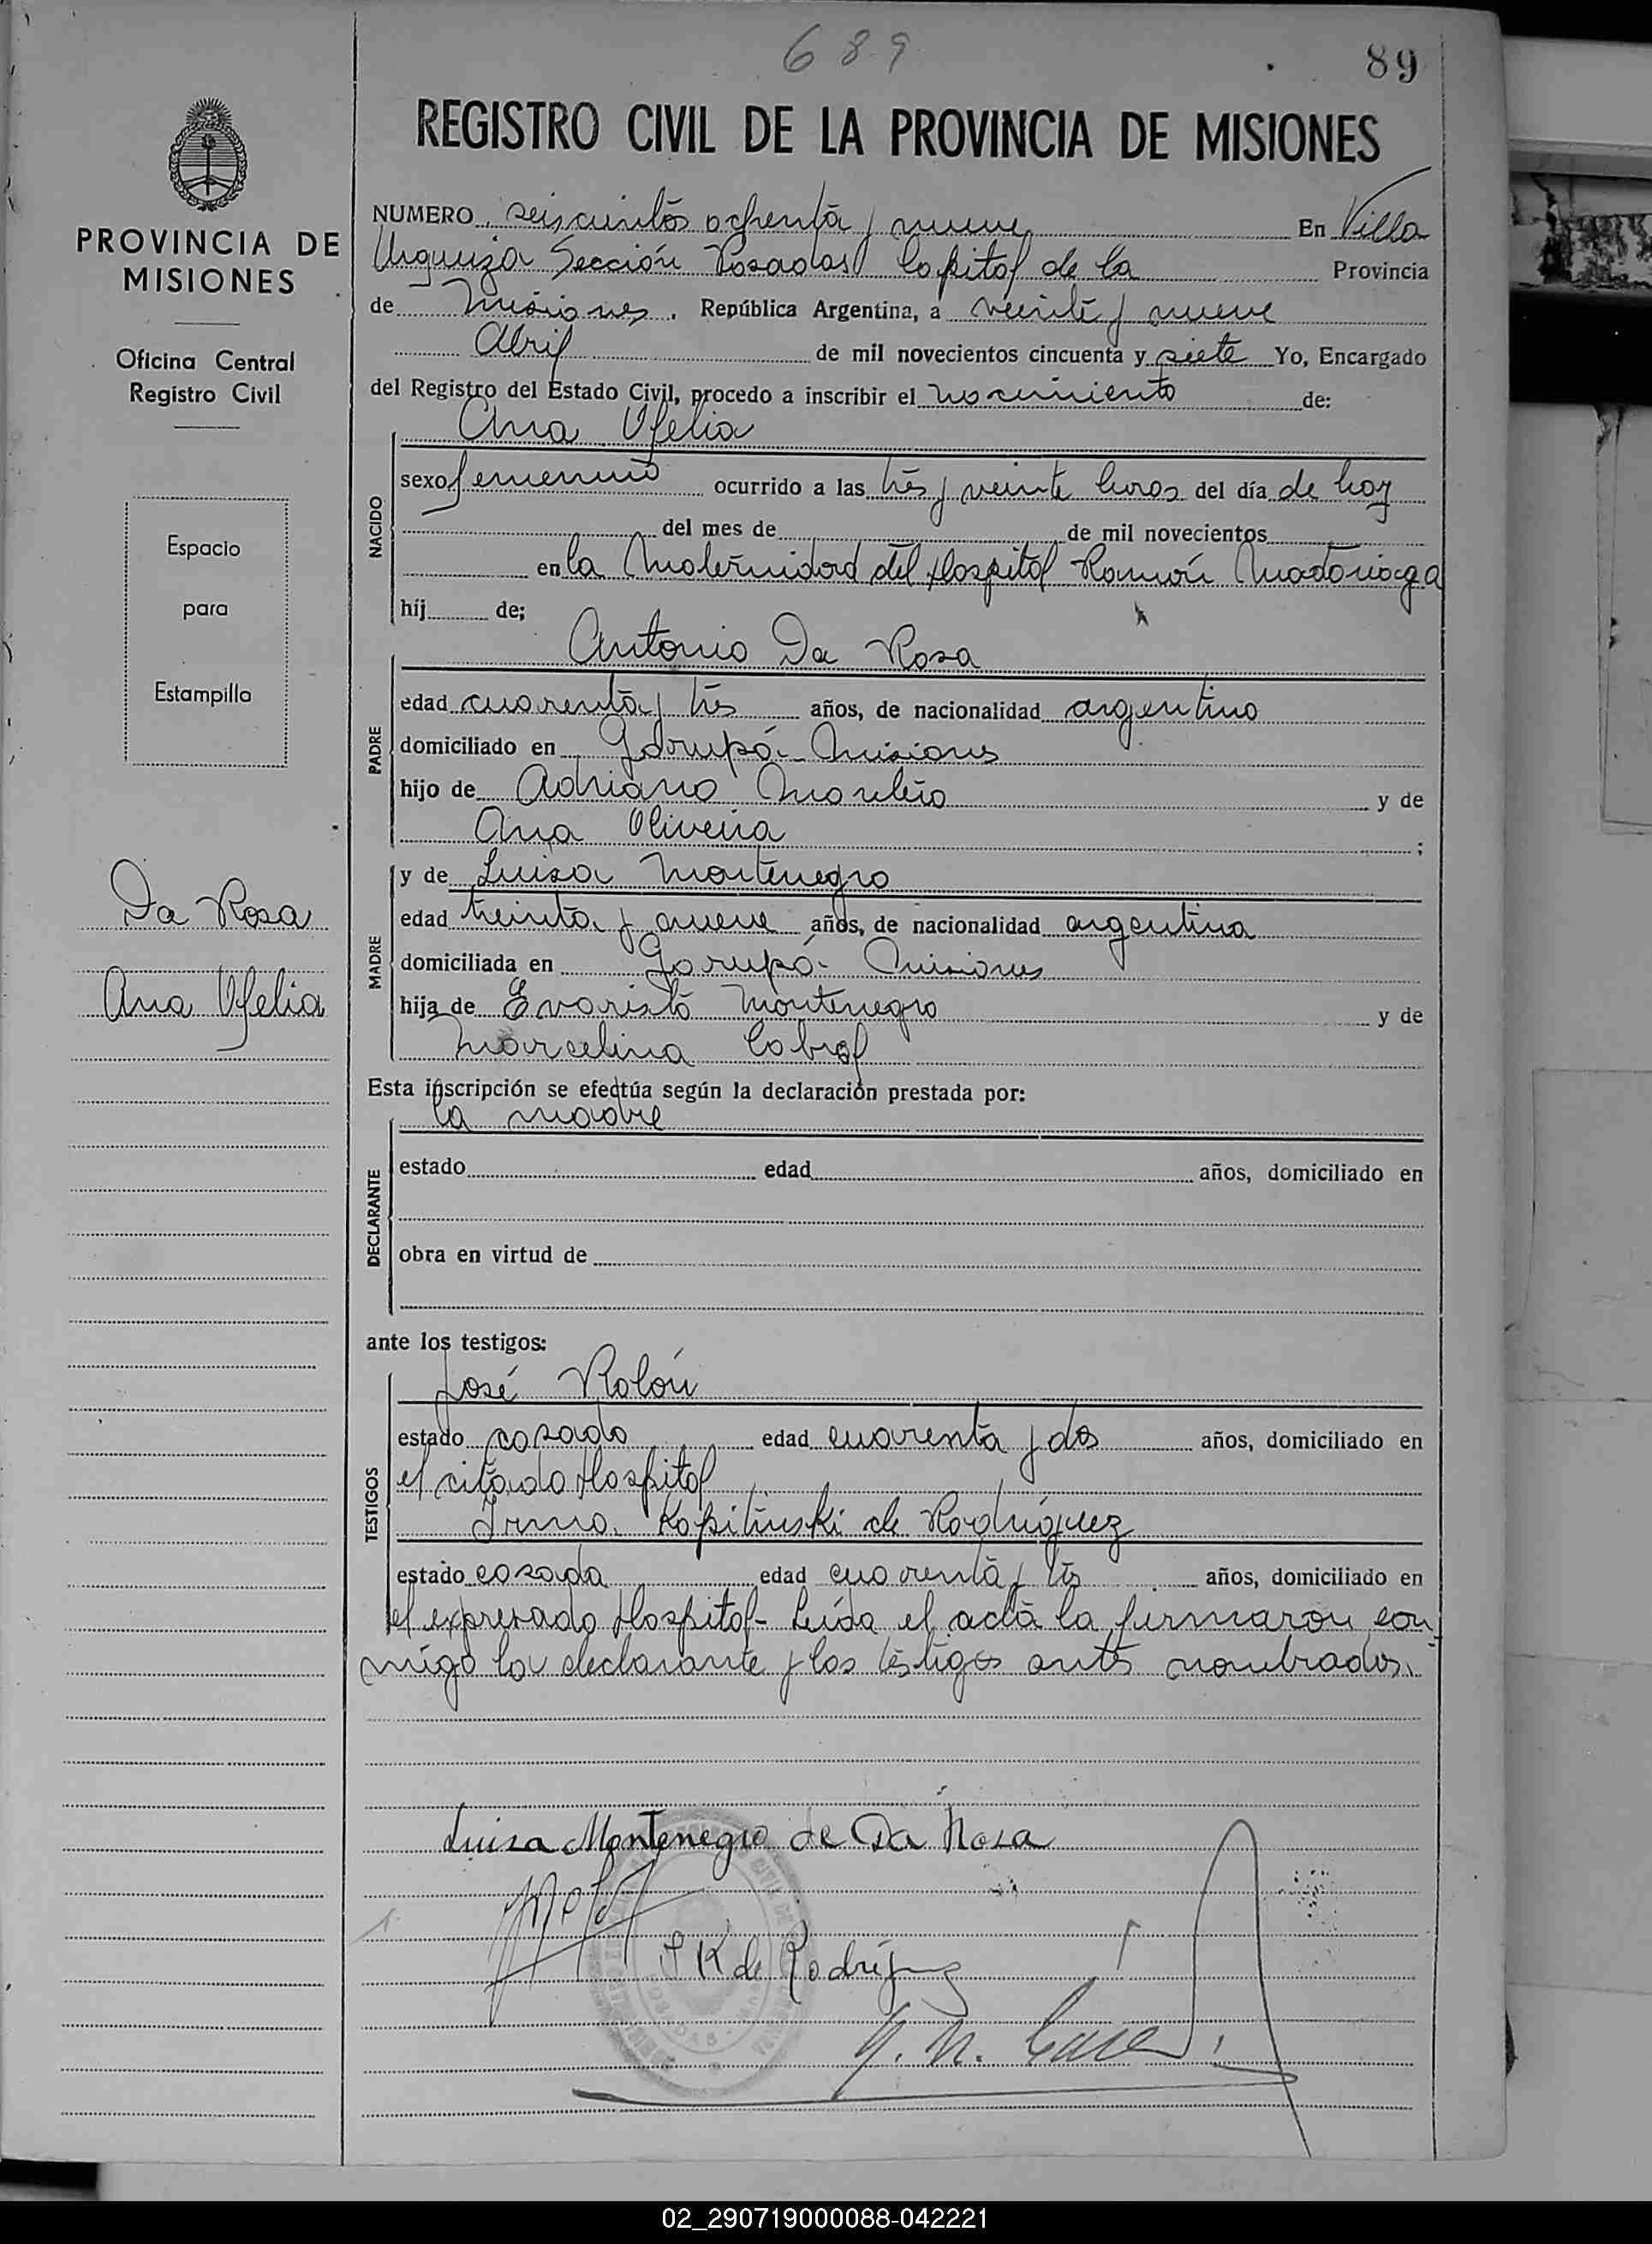 689
89
REGISTRO CIVIL DE LA PROVINCIA DE MISIONES
PROVINCIA DE
MISIONES
Oficina Central
Registro Civil
Espacio
para
Estampilla
Da Rosa
Ana Ofelia
NUMERO seiscientos ochenta y nueve En Villa
Urquiza Sección Posadas Capital de la Provincia
de Misiones, República Argentina, a veinte y nueve
Abril de mil novecientos cincuenta y siete Yo, Encargado
del Registro del Estado Civil, procedo a inscribir el nacimiento de:
Ana Ofelia
NACIDO
sexo femenino ocurrido a las tres y veinte horas del día de hoy
del mes de de mil novecientos
en la Maternidad del Hospital Ramón Madariaga
híj de;
Antonio Da Rosa
PADRE
edad cuarenta y tres años, de nacionalidad argentino
domiciliado en Garupá - Misiones
hijo de Adriano y de
Ana Oliveira ;
y de Luisa Montenegro
MADRE
edad treinta y nueve años, de nacionalidad argentina
domiciliada en Garupá - Misiones
hija de Evaristo Montenegro y de
Marcelina Cabral
Esta inscripción se efectúa según la declaración prestada por:
la madre
DECLARANTE
estado edad años, domiciliado en
obra en virtud de
ante los testigos:
José Rolón
TESTIGOS
estado casado edad cuarenta y dos años, domiciliado en
el citado Hospital
Irma Kopitinski de Rodríguez
estado casada edad cuarenta y tres años, domiciliado en
el expresado Hospital - Leída el acta la firmaron con
migo la declarante y los testigos antes nombrados.
Luisa Montenegro de Da Rosa
I K de Rodríguez
02_290719000088-042221